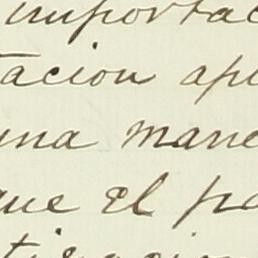 importac
tacion ap
una mane
que el pa